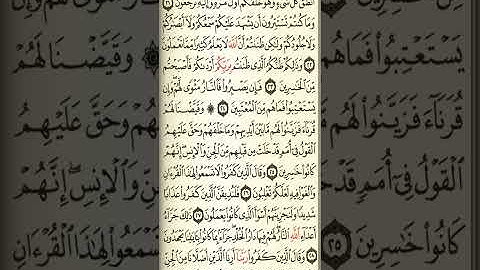 أَنطَقَ كُلَّ شَىْءٍ وَهُوَ خَلَقَكُمْ أَوَّلَ مَرَّةٍ وَإِلَيْهِ تُرْجَعُونَ ٢١
وَمَا كُنتُمْ تَسْتَتِرُونَ أَن يَشْهَدَ عَلَيْكُمْ سَمْعُكُمْ وَلَآ أَبْصَٰرُكُمْ
وَلَا جُلُودُكُمْ وَلَٰكِن ظَنَنتُمْ أَنَّ ٱللَّهَ لَا يَعْلَمُ كَثِيرًا مِّمَّا تَعْمَلُونَ
٢٢ وَذَٰلِكُمْ ظَنُّكُمُ ٱلَّذِى ظَنَنتُم بِرَبِّكُمْ أَرْدَىٰكُمْ فَأَصْبَحْتُم
مِّنَ ٱلْخَٰسِرِينَ ٢٣ فَإِن يَصْبِرُوا۟ فَٱلنَّارُ مَثْوًى لَّهُمْ وَإِن
يَسْتَعْتِبُوا۟ فَمَا هُم مِّنَ ٱلْمُعْتَبِينَ ٢٤ ۞ وَقَيَّضْنَا لَهُمْ
قُرَنَآءَ فَزَيَّنُوا۟ لَهُم مَّا بَيْنَ أَيْدِيهِمْ وَمَا خَلْفَهُمْ وَحَقَّ عَلَيْهِمُ
ٱلْقَوْلُ فِىٓ أُمَمٍ قَدْ خَلَتْ مِن قَبْلِهِم مِّنَ ٱلْجِنِّ وَٱلْإِنسِ إِنَّهُمْ
كَانُوا۟ خَٰسِرِينَ ٢٥ وَقَالَ ٱلَّذِينَ كَفَرُوا۟ لَا تَسْمَعُوا۟ لِهَٰذَا ٱلْقُرْءَانِ
وَٱلْغَوْا۟ فِيهِ لَعَلَّكُمْ تَغْلِبُونَ ٢٦ فَلَنُذِيقَنَّ ٱلَّذِينَ كَفَرُوا۟ عَذَابًا
شَدِيدًا وَلَنَجْزِيَنَّهُمْ أَسْوَأَ ٱلَّذِى كَانُوا۟ يَعْمَلُونَ ٢٧ ذَٰلِكَ جَزَآءُ
أَعْدَآءِ ٱللَّهِ ٱلنَّارُ لَهُمْ فِيهَا دَارُ ٱلْخُلْدِ جَزَآءًۢ بِمَا كَانُوا۟ بِـَٔايَٰتِنَا يَجْحَدُونَ
٢٨ وَقَالَ ٱلَّذِينَ كَفَرُوا۟ رَبَّنَآ أَرِنَا ٱلَّذَيْنِ أَضَلَّانَا مِنَ ٱلْجِنِّ